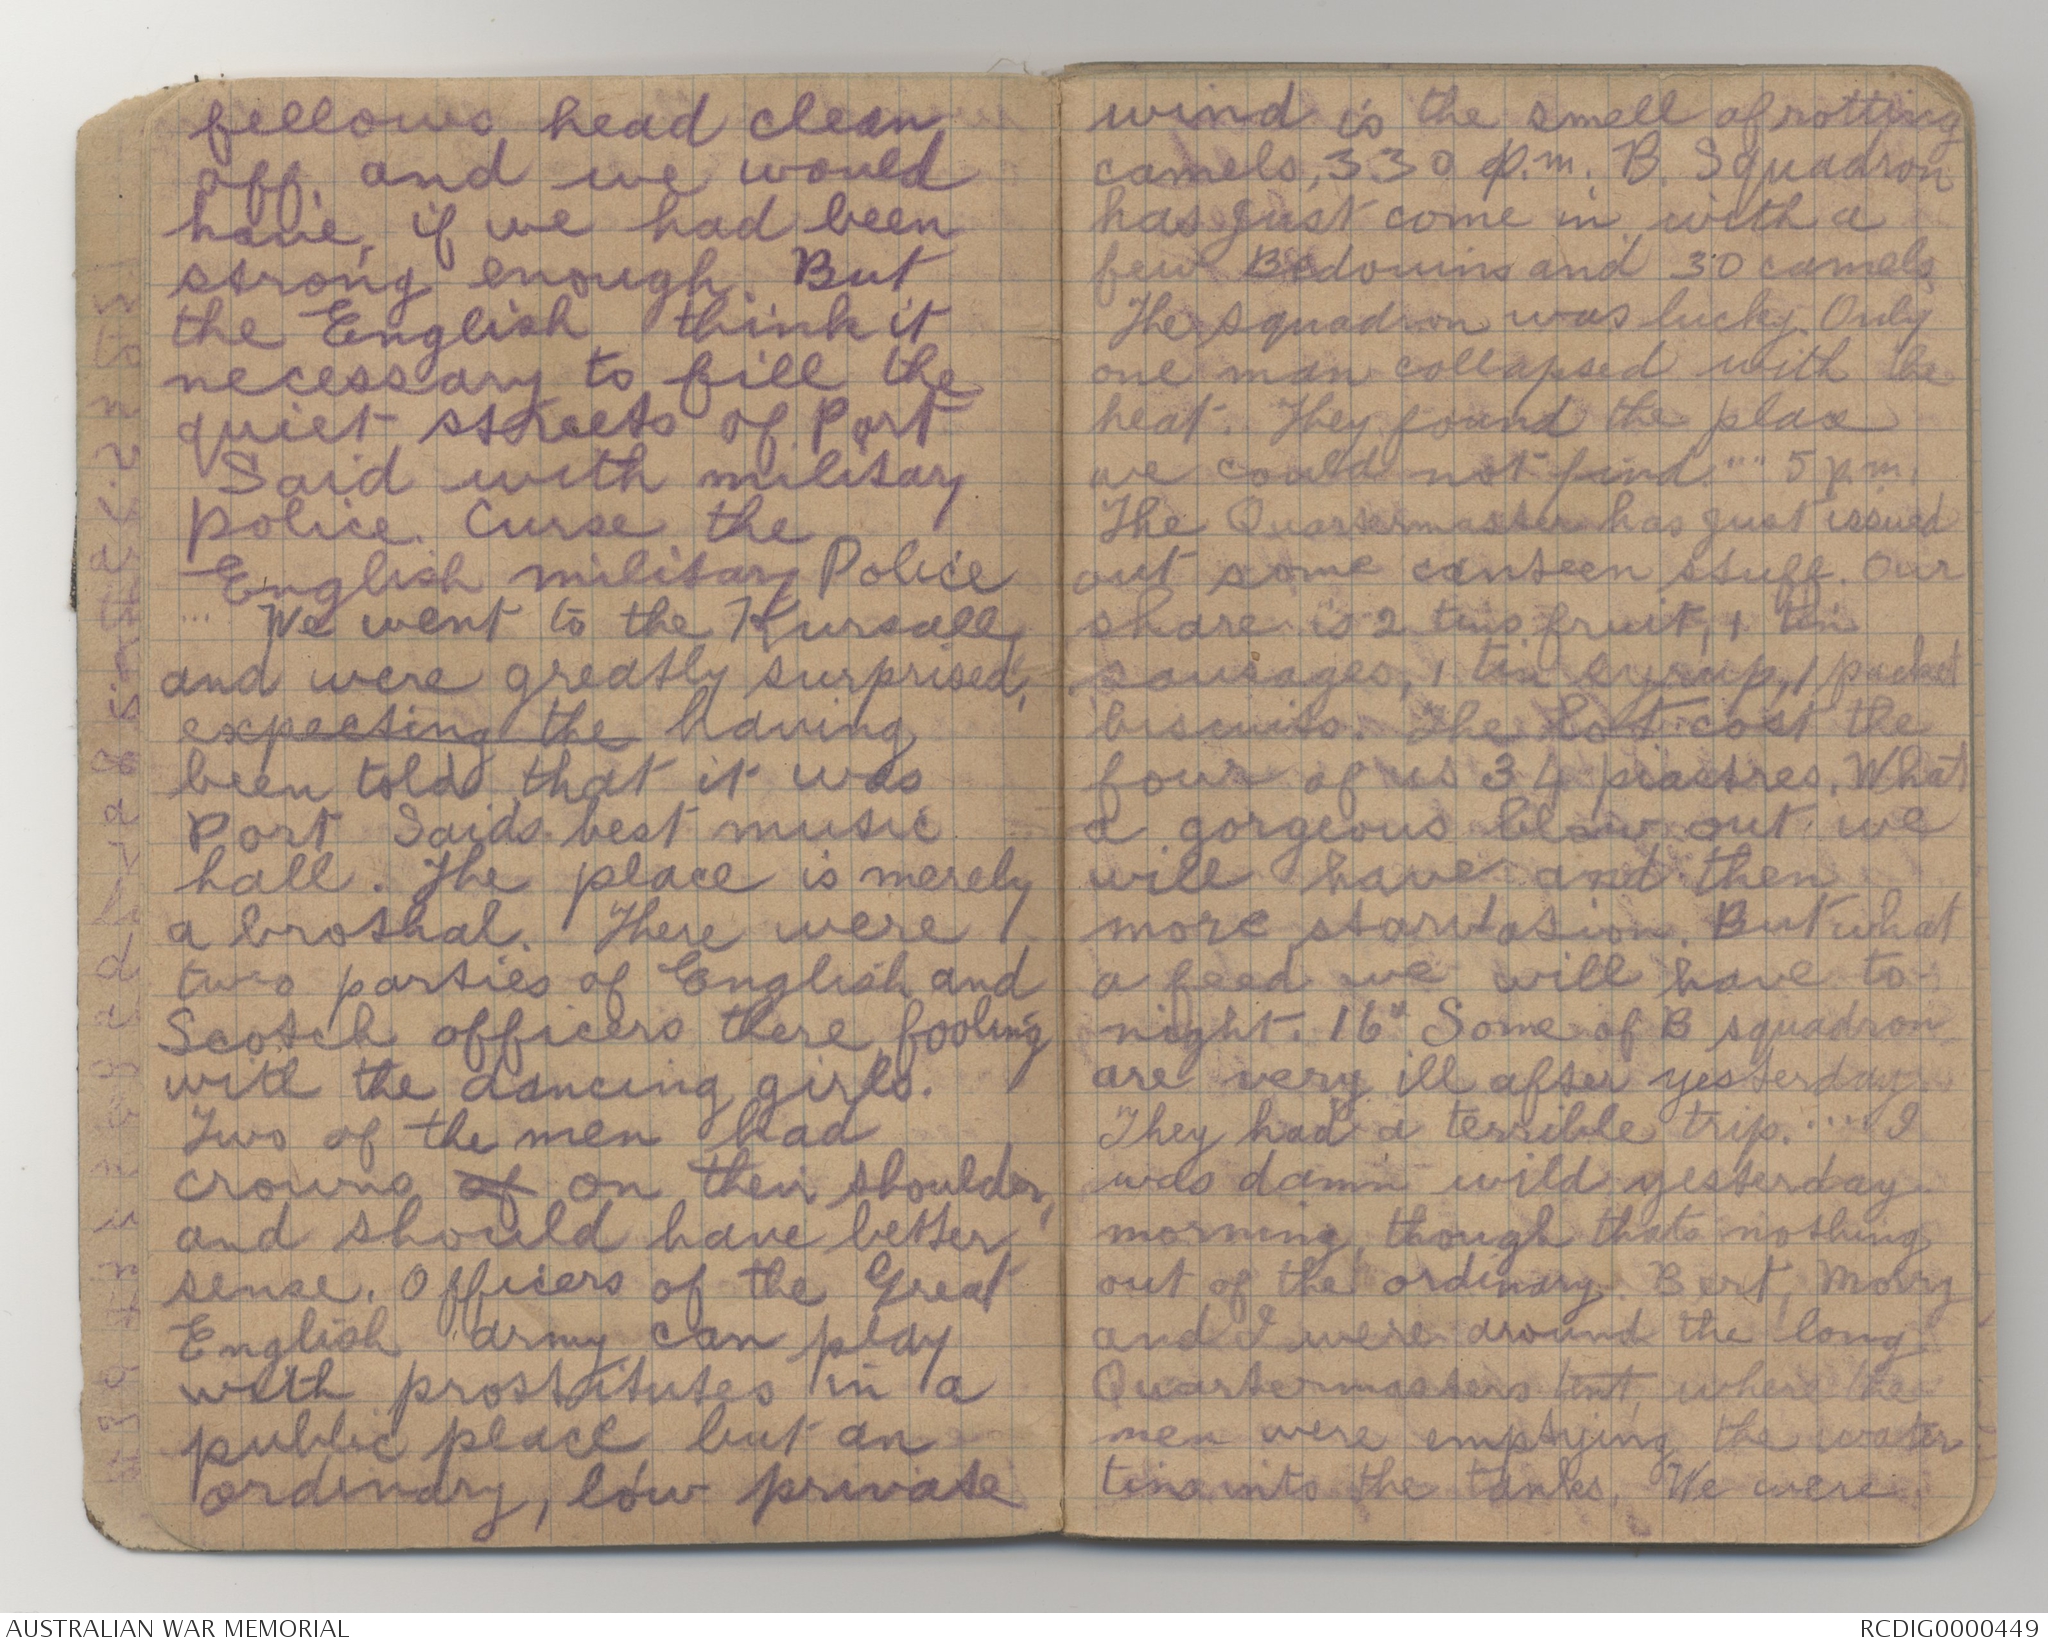 fellows head clean
off, and we would
have, if we had been
strong enough. But
the English think it
necessary to fill the
quiet streets of Port
Said with military
police. Curse the
English military Police
... We went to the Kursall,
and were greatly surprised,
expecting the having
been told that it was
Port Saids best music
hall. The place is merely
a brothal. There were
two parties of English and
Scotch officers there, fooling
with the dancing girls.
Two of the men had
crowns of on their shoulders,
and should have better
sense. Officers of the Great
English army can play
with prostitutes in a
public place but an
ordinary, low private
wind is the smell of rotting
camels, 330 p.m. B. Squadron
has just come in with a
few Bedouins and 30 camels
The squadron was lucky. Only
one man collapsed with the
heat. They found the place
we could not find. "" 5 p.m.
The Quartermaster has just issued
out some canteen stuff. Our
share is 2 tins fruit, 1 tin
sausages, 1 tin syrup, 1 packet
biscuits. The lot cost the
four of us 34 piastres. What
a gorgeous blow out we
will have and then
more starvation. But what
a feed we will have to-
night. 16th Some of B squadron
are very ill after yesterday
They had a terrible trip. .... I
was damn wild yesterday
morning, though thats nothing
out of the ordinary. Bert, Morry
and I were around the long
Quartermasters tent, where the
men were emptying the water
tins into the tanks. We were
AUSTRALIAN WAR MEMORIAL
RCDIG0000449